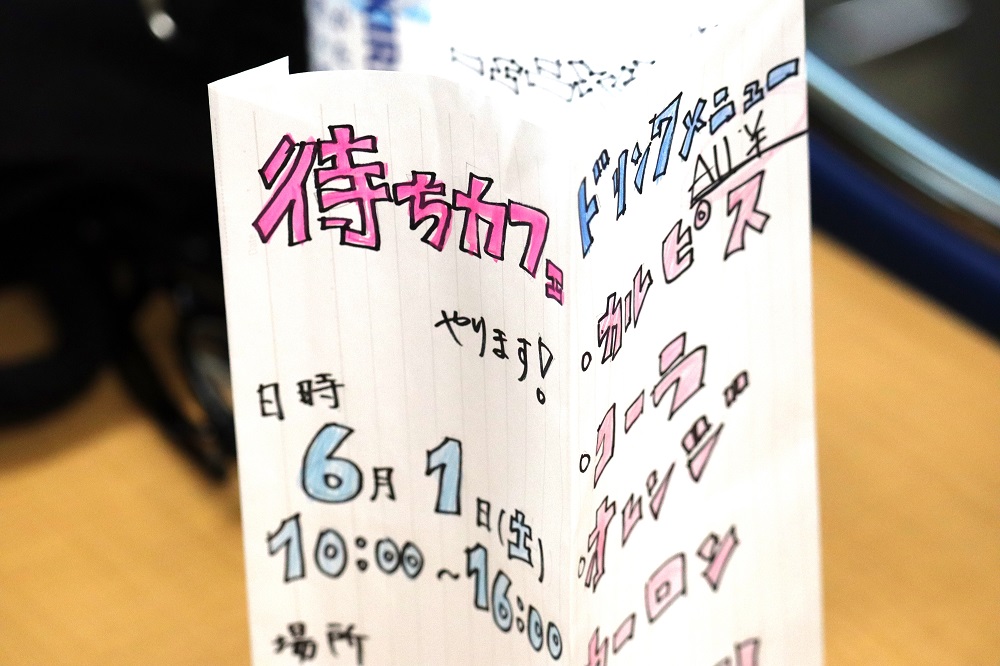 待ちカフェ
やります!
日時
6月1日(土)
10:00~16:00
場所
ドリンクメニュー
All
・カルピス
・コーラ
・オレンジ
ーロン